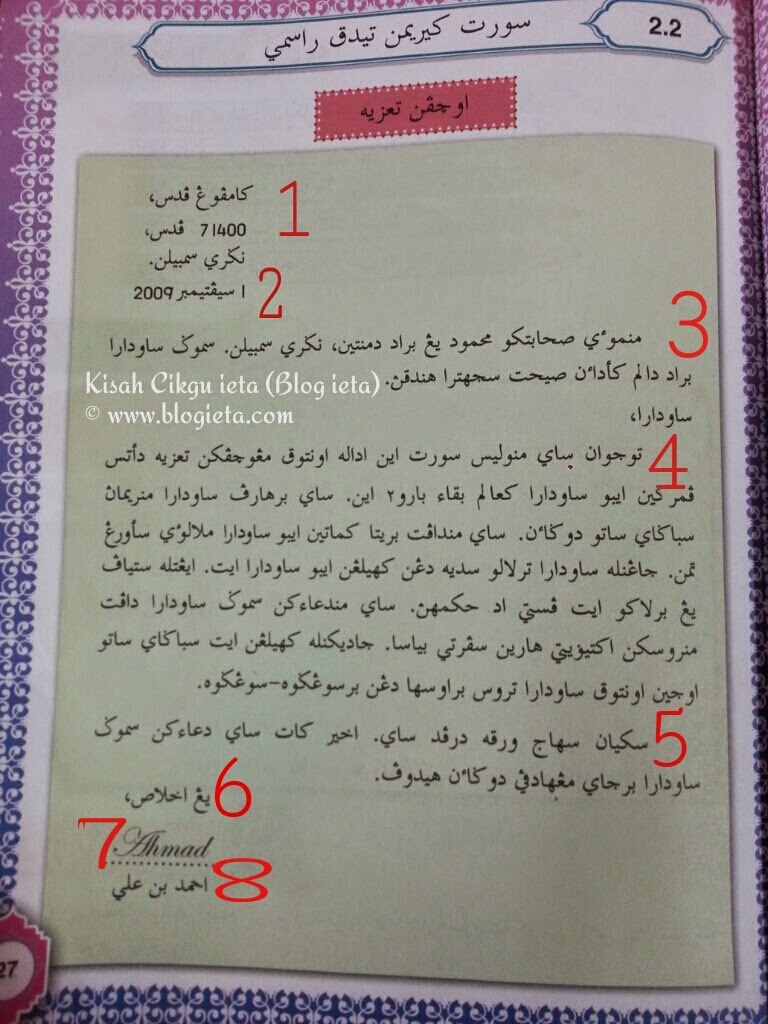 2.2
سورت كيريمن تيدق راسمي
اوچڤن تعزيه
كامڤوڠ ڤدس،
71400 ڤدس،
نݢري سمبيلن.
1 سيڤتيمبر 2009
1
2
3
منموٴي صحابتكو محمود يڠ براد دمنتين، نݢري سمبيلن. سموݢ ساودارا
براد دالم كأداٴن صيحت سجهترا هندقڽ.
Kisah Cikgu ieta (Blog ieta)
© www.blogieta.com
ساودارا،
4
توجوان ساي منوليس سورت اين اداله اونتوق مڠوچڤكن تعزيه دأتس
ڤمركين ايبو ساودارا كعالم بقاء بارو٢ اين. ساي برهارڤ ساودارا منريماڽ
سباݢاي ساتو دوݢاٴن. ساي منداڤت بريتا كماتين ايبو ساودارا ملالوٴي سأورڠ
تمن. جاڠنله ساودارا ترلالو سديه دڠن كهيلڠن ايبو ساودارا ايت. ايڠتله ستياڤ
يڠ برلاكو ايت ڤستي اد حكمهڽ. ساي مندعاءكن سموݢ ساودارا داڤت
منروسكن اكتيۏيتي هارين سڤرتي بياسا. جاديكنله كهيلڠن ايت سباݢاي ساتو
اوجين اونتوق ساودارا تروس براوسها دڠن برسوڠݢوه-سوڠݢوه.
5
سكيان سهاج ورقه درڤد ساي. اخير كات ساي دعاءكن سموݢ
ساودارا برجاي مڠهادڤي دوݢاٴن هيدوڤ.
6
يڠ اخلاص،
7
Ahmad
8
احمد بن علي
27